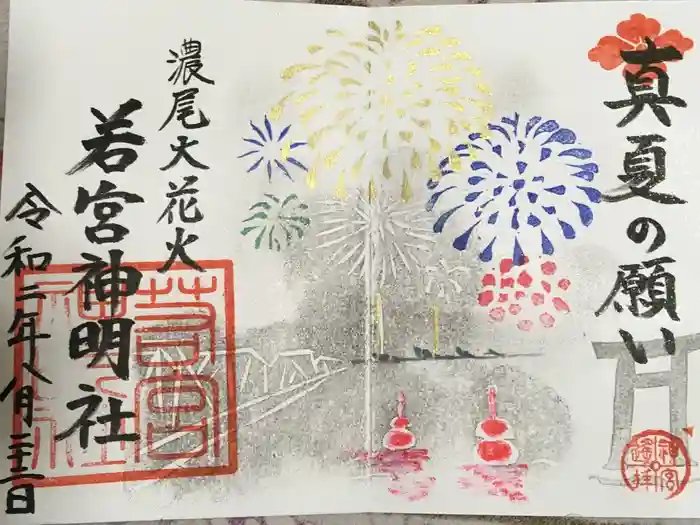 真夏の願い
濃尾大花火
若宮神明社
令和二年八月二十三日
神宮
遥拝